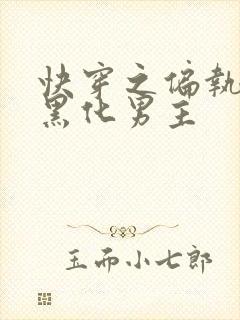 快穿之偏執
黑化男主
玉而小七郎